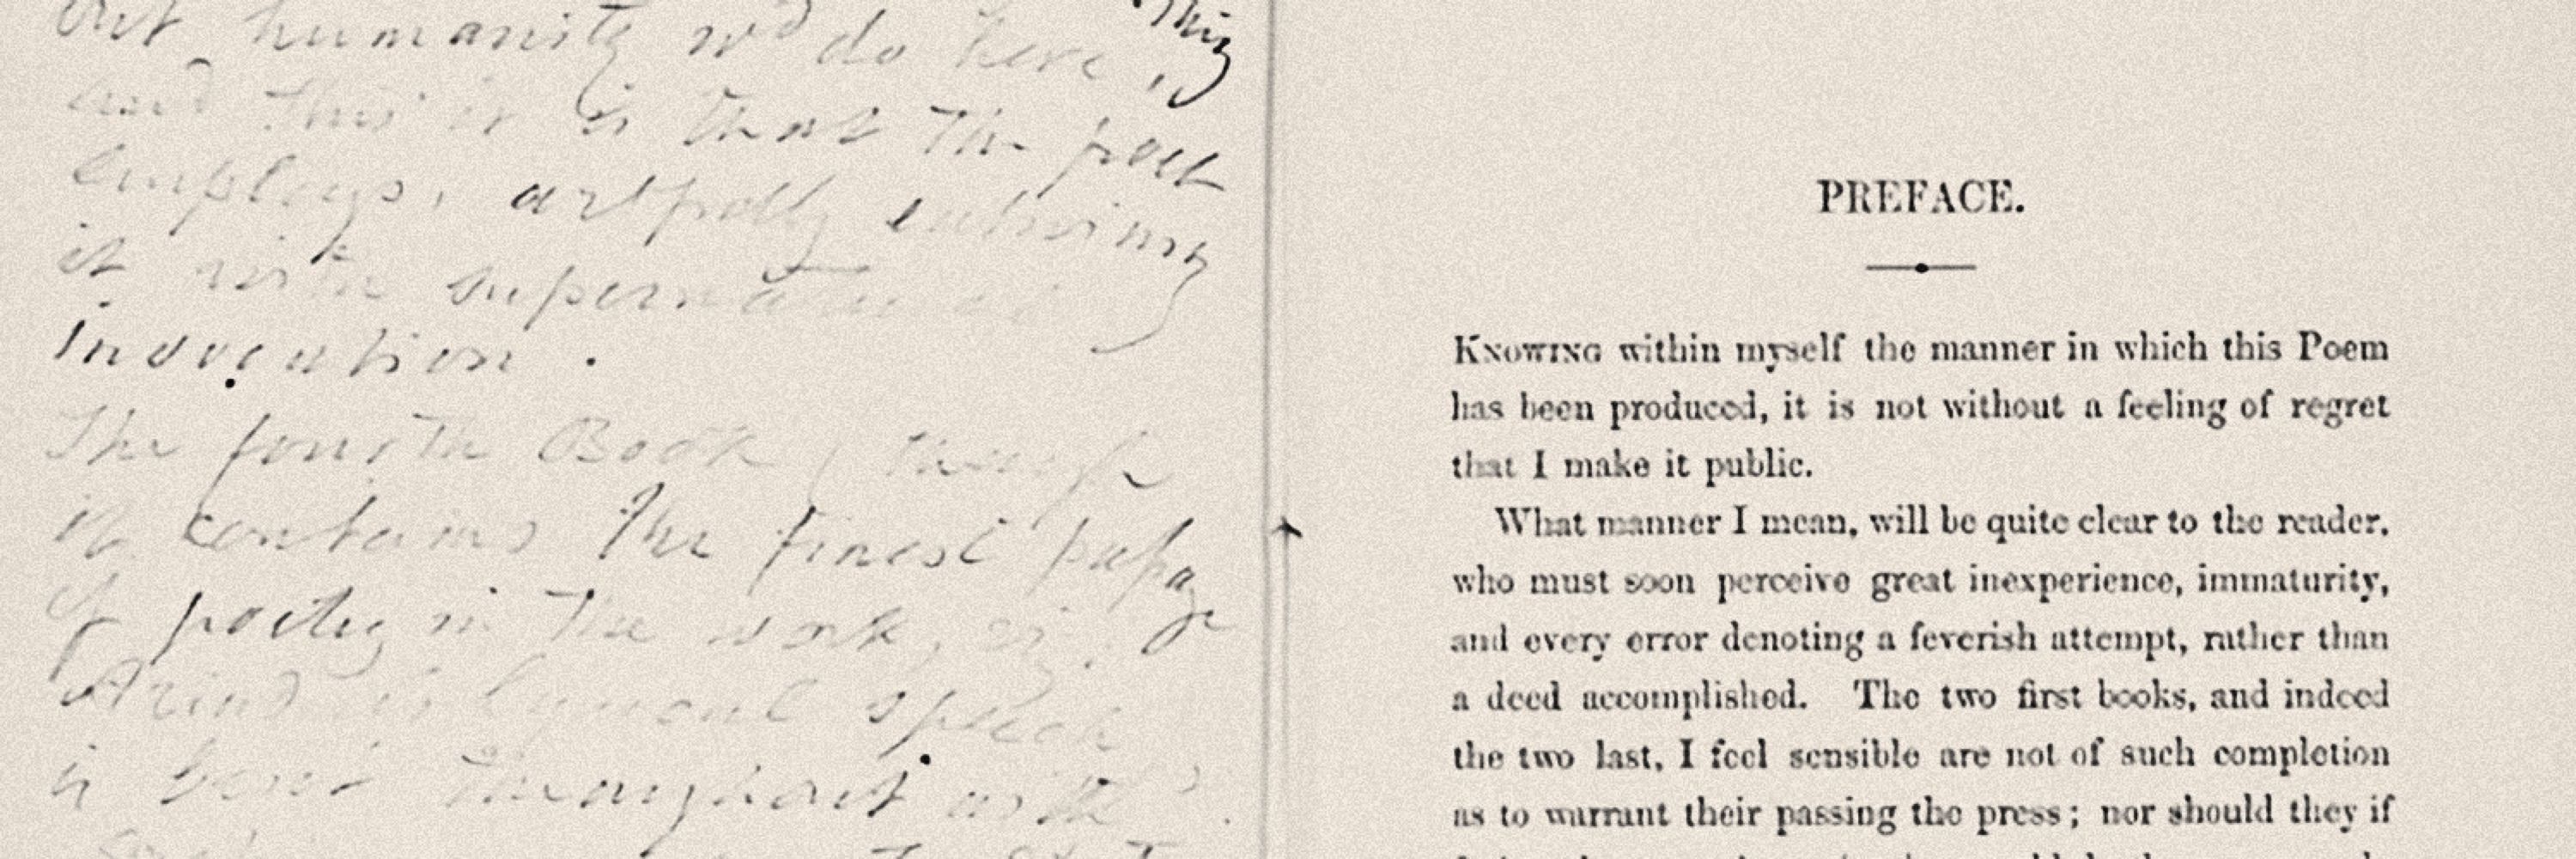 but humanity wd do here, this
and this it is that the poet
employs, artfully
it with supernatural
invention.
The fourth Book, though
it contains the finest passage
of poetry in the work,
is best throughout with
PREFACE.
KNOWING within myself the manner in which this Poem
has been produced, it is not without a feeling of regret
that I make it public.
What manner I mean, will be quite clear to the reader,
who must soon perceive great inexperience, immaturity,
and every error denoting a feverish attempt, rather than
a deed accomplished. The two first books, and indeed
the two last, I feel sensible are not of such completion
as to warrant their passing the press; nor should they if